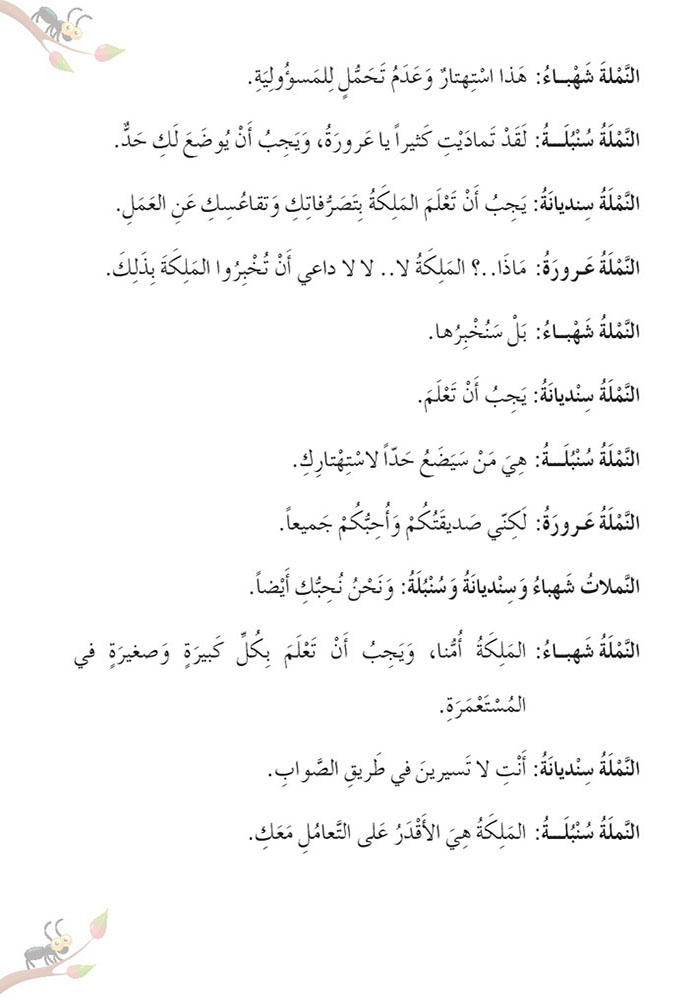 النَّمْلةَ شَهْبـاءُ: هَذا اسْتِهتارٌ وَعَدَمُ تَحَمُّلٍ لِلمَسؤُولِيَةِ.
النَّمْلَةُ سُنْبُلَـــةُ: لَقَدْ تَمادَيْتِ كَثيراً يا عَرورَةُ، وَيَجِبُ أَنْ يُوضَعَ لَكِ حَدٌّ.
النَّمْلَةُ سِنديانَةُ: يَجِبُ أَنْ تَعْلَمَ المَلِكَةُ بِتَصَرُّفاتِكِ وَتقاعُسِكِ عَنِ العَمَلِ.
النَّمْلَةُ عَـرورَةُ: مَاذَا..؟ المَلِكَةُ لا.. لا لا داعي أَنْ تُخْبِرُوا المَلِكَةَ بِذَلِكَ.
النَّمْلةُ شَهْبـاءُ: بَلْ سَنُخْبِرُها.
النَّمْلَةُ سِنْديانَةُ: يَجِبُ أَنْ تَعْلَمَ.
النَّمْلَةُ سُنْبُلَـــةُ: هِيَ مَنْ سَيَضَعُ حَدّاً لاسْتِهْتارِكِ.
النَّمْلَةُ عَـرورَةُ: لَكِنّي صَديقَتُكُمْ وَأُحِبُّكُمْ جَميعاً.
النَّملاتُ شَهباءُ وَسِنْديانَةُ وَسُنْبُلَةُ: وَنَحْنُ نُحِبُّكِ أَيْضاً.
النَّمْلَةُ شَهبـاءُ: المَلِكَةُ أُمُّنا، وَيَجِبُ أَنْ تَعْلَمَ بِكُلِّ كَبيرَةٍ وَصغيرَةٍ في
المُسْتَعْمَرَةِ.
النَّمْلَةُ سِنْديانَةُ: أَنْتِ لا تَسيرينَ في طَريقِ الصَّوابِ.
النَّملَةُ سُنْبُلَـــةُ: المَلِكَةُ هِيَ الأَقْدَرُ عَلى التَّعامُلِ مَعَكِ.